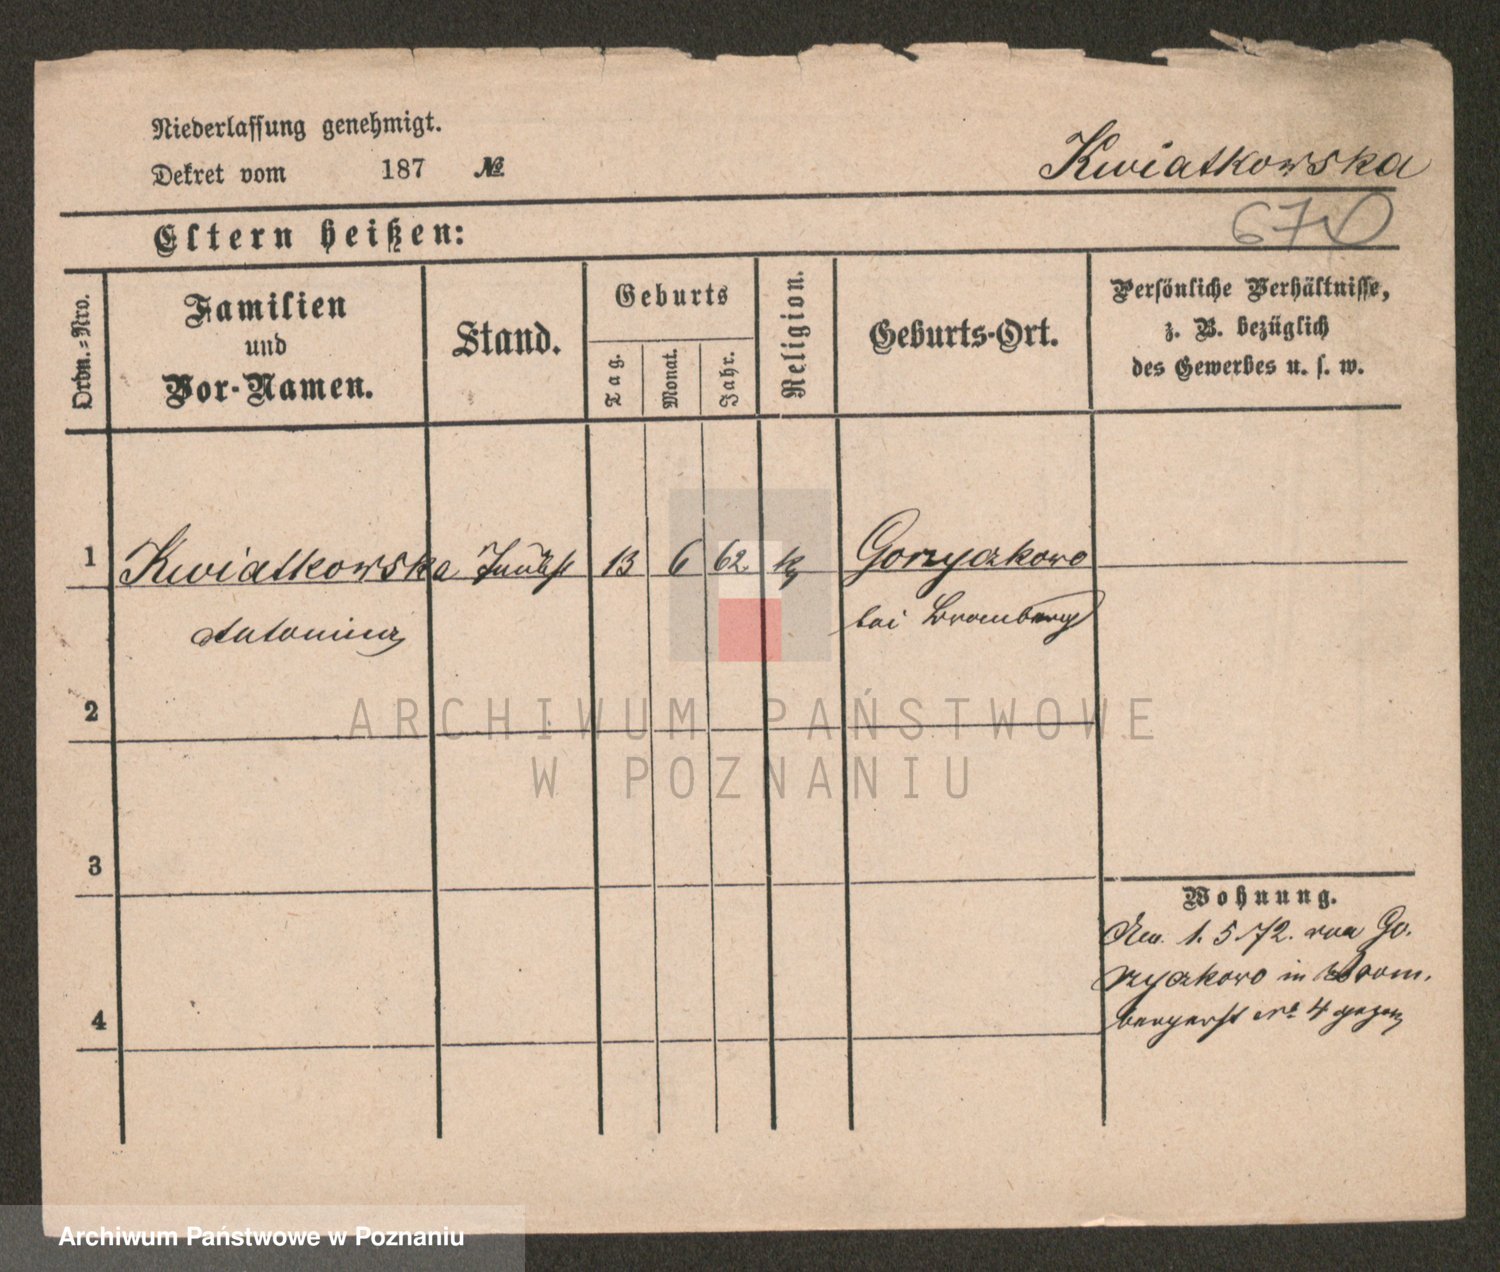 Niederlassung genehmigt.
Dekret vom 187 №
Kwiatkowska
Eltern heißen:
Ordn.=Nro.
Familien
und
Vor-Namen.
Stand.
Geburts
Tag.
Monat.
Jahr.
Religion.
Geburts-Ort.
Persönliche Verhältnisse,
z. B. bezüglich
des Gewerbes u. s. w.
1 Kwiatkowska 13 6 62. k Gorzyczkowo
Antonina bei Bromberg
2
ARCHIWUM PAŃSTWOWE
W POZNANIU
3
Wohnung.
1. 5. 72. von Go-
rzyczkowo in Brom-
bergerst № 4 gezog
4
Archiwum Państwowe w Poznaniu